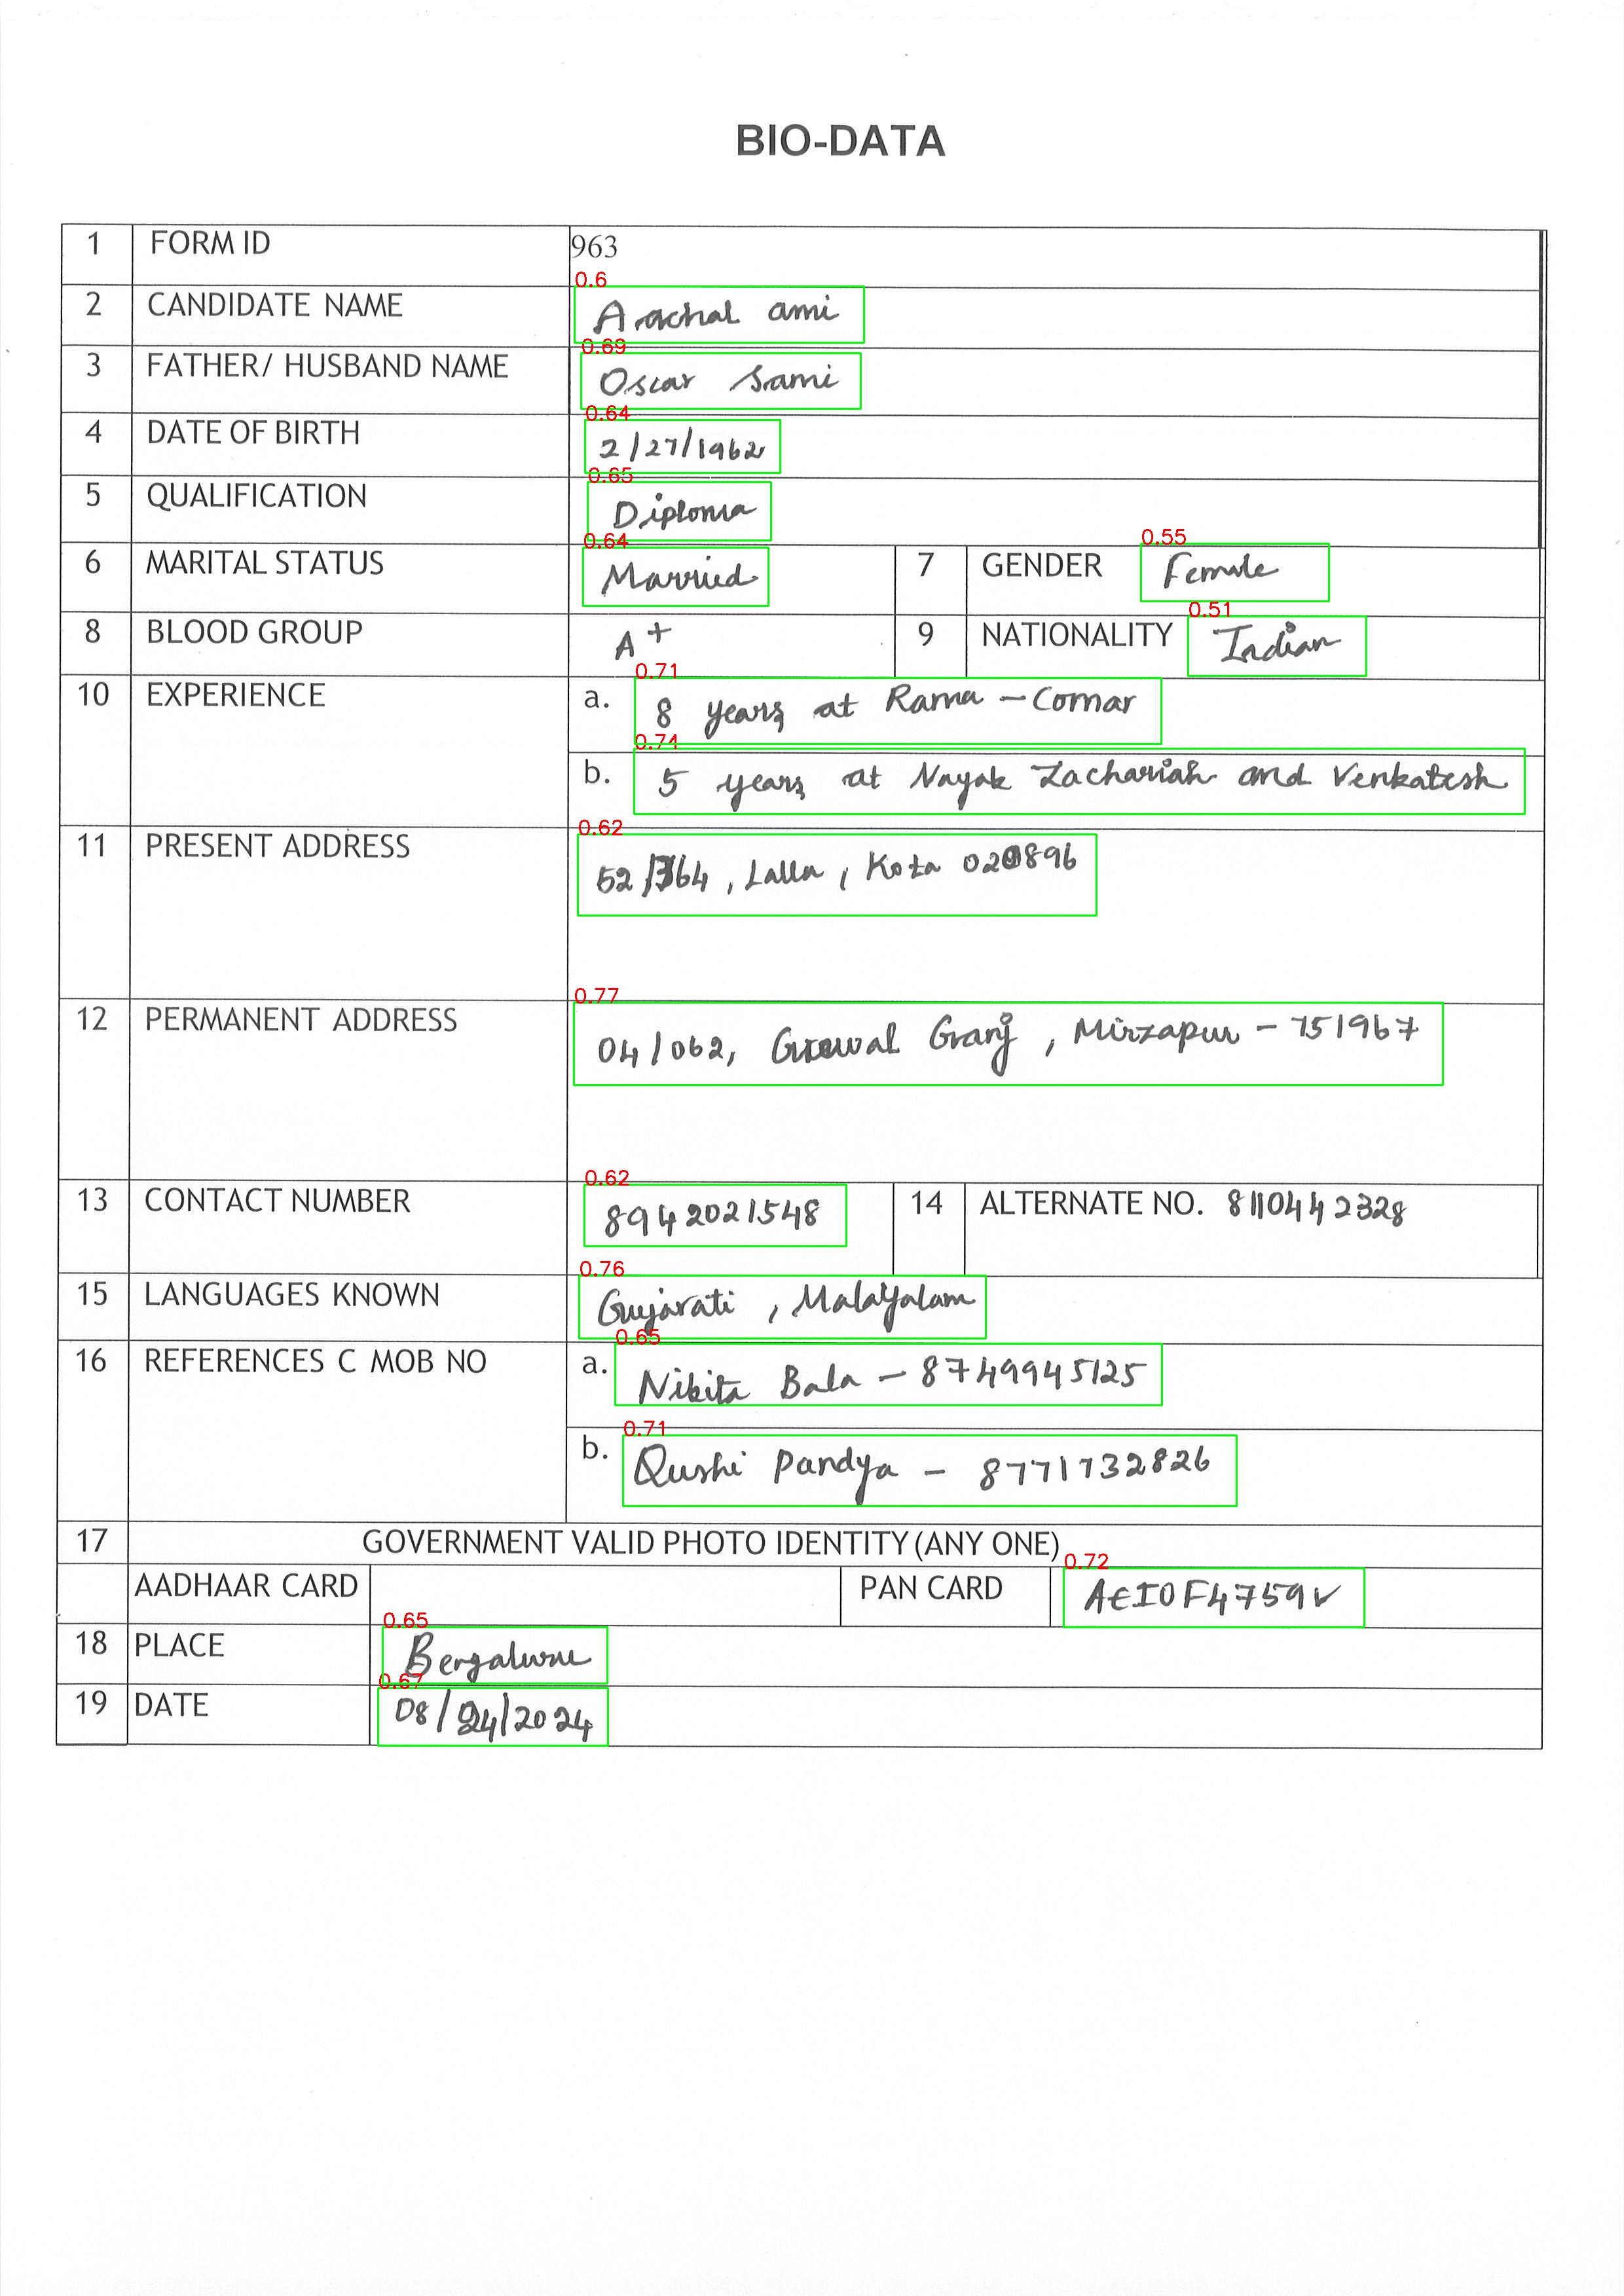 BIO-DATA
1 FORM ID 963
0.6
2 CANDIDATE NAME Aachal ami
0.69
3 FATHER/ HUSBAND NAME Oscar Sami
0.64
4 DATE OF BIRTH 2/27/1962
0.65
5 QUALIFICATION Diploma
0.64 0.55
6 MARITAL STATUS Married 7 GENDER Female
0.51
8 BLOOD GROUP A+ 9 NATIONALITY Indian
0.71
10 EXPERIENCE a. 8 years at Rama - Comar
0.74
b. 5 years at Nayak Zachariah and Venkatesh
0.62
11 PRESENT ADDRESS 52/364, Lalla, Kota 020896
0.77
12 PERMANENT ADDRESS 04/062, Grewal Ganj, Mirzapur - 751967
0.62
13 CONTACT NUMBER 8942021548 14 ALTERNATE NO. 8110442328
0.76
15 LANGUAGES KNOWN Gujarati, Malayalam
0.65
16 REFERENCES C MOB NO a. Nikita Bala - 8749945125
0.71
b. Qushi Pandya - 8771732826
17 GOVERNMENT VALID PHOTO IDENTITY (ANY ONE)
0.72
AADHAAR CARD PAN CARD AEIOF4759V
0.65
18 PLACE Bengalurue
0.67
19 DATE 08/24/2024